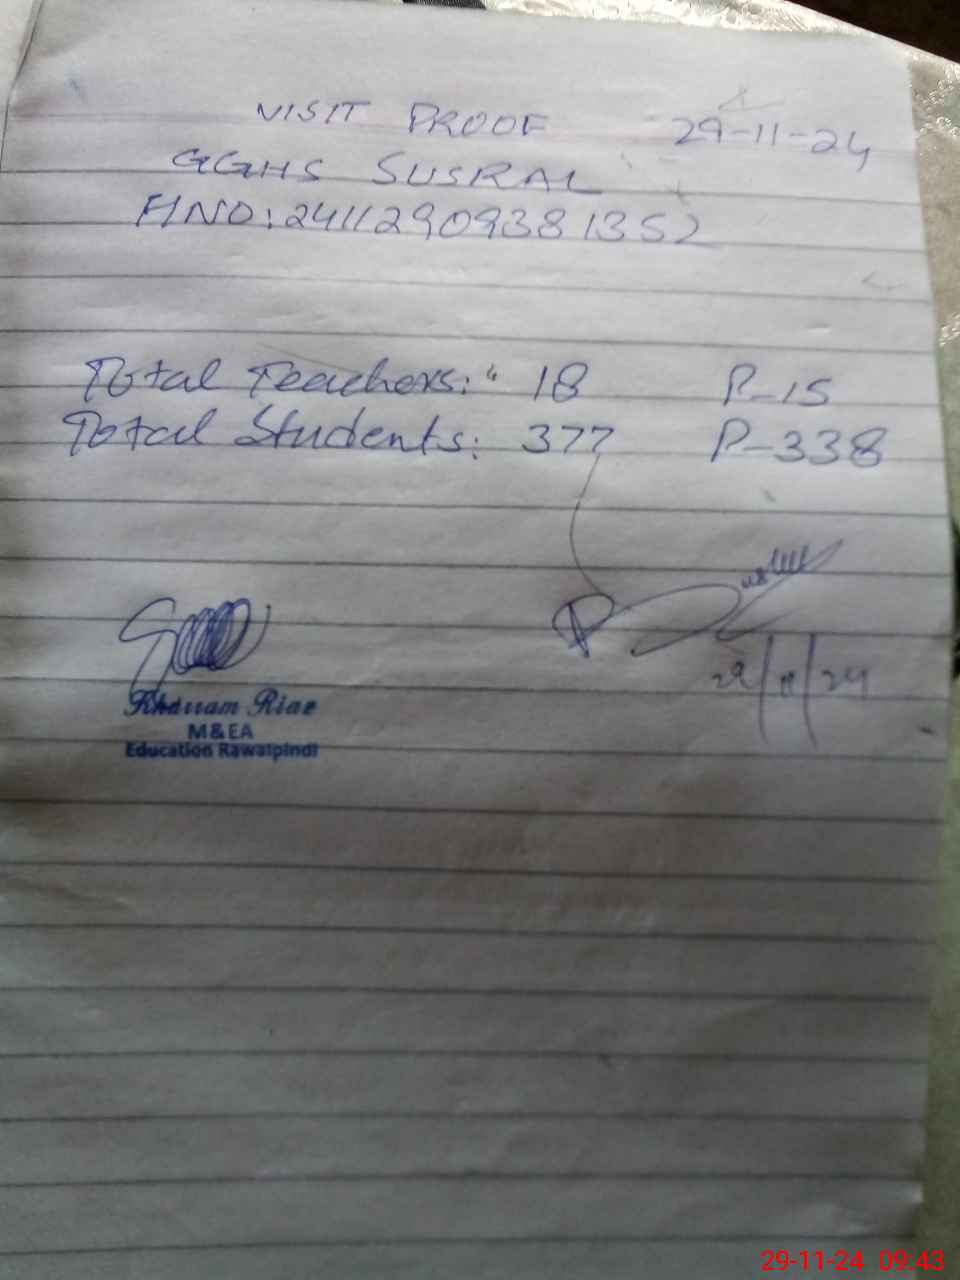 VISIT PROOF 29-11-24
GGHS SUSRAL
HNO: 24112909381352
Total Teachers: 18 P-15
Total Students: 377 P-338
29/11/24
Riaz
M&EA
Education Rawalpindi
29-11-24 09:43